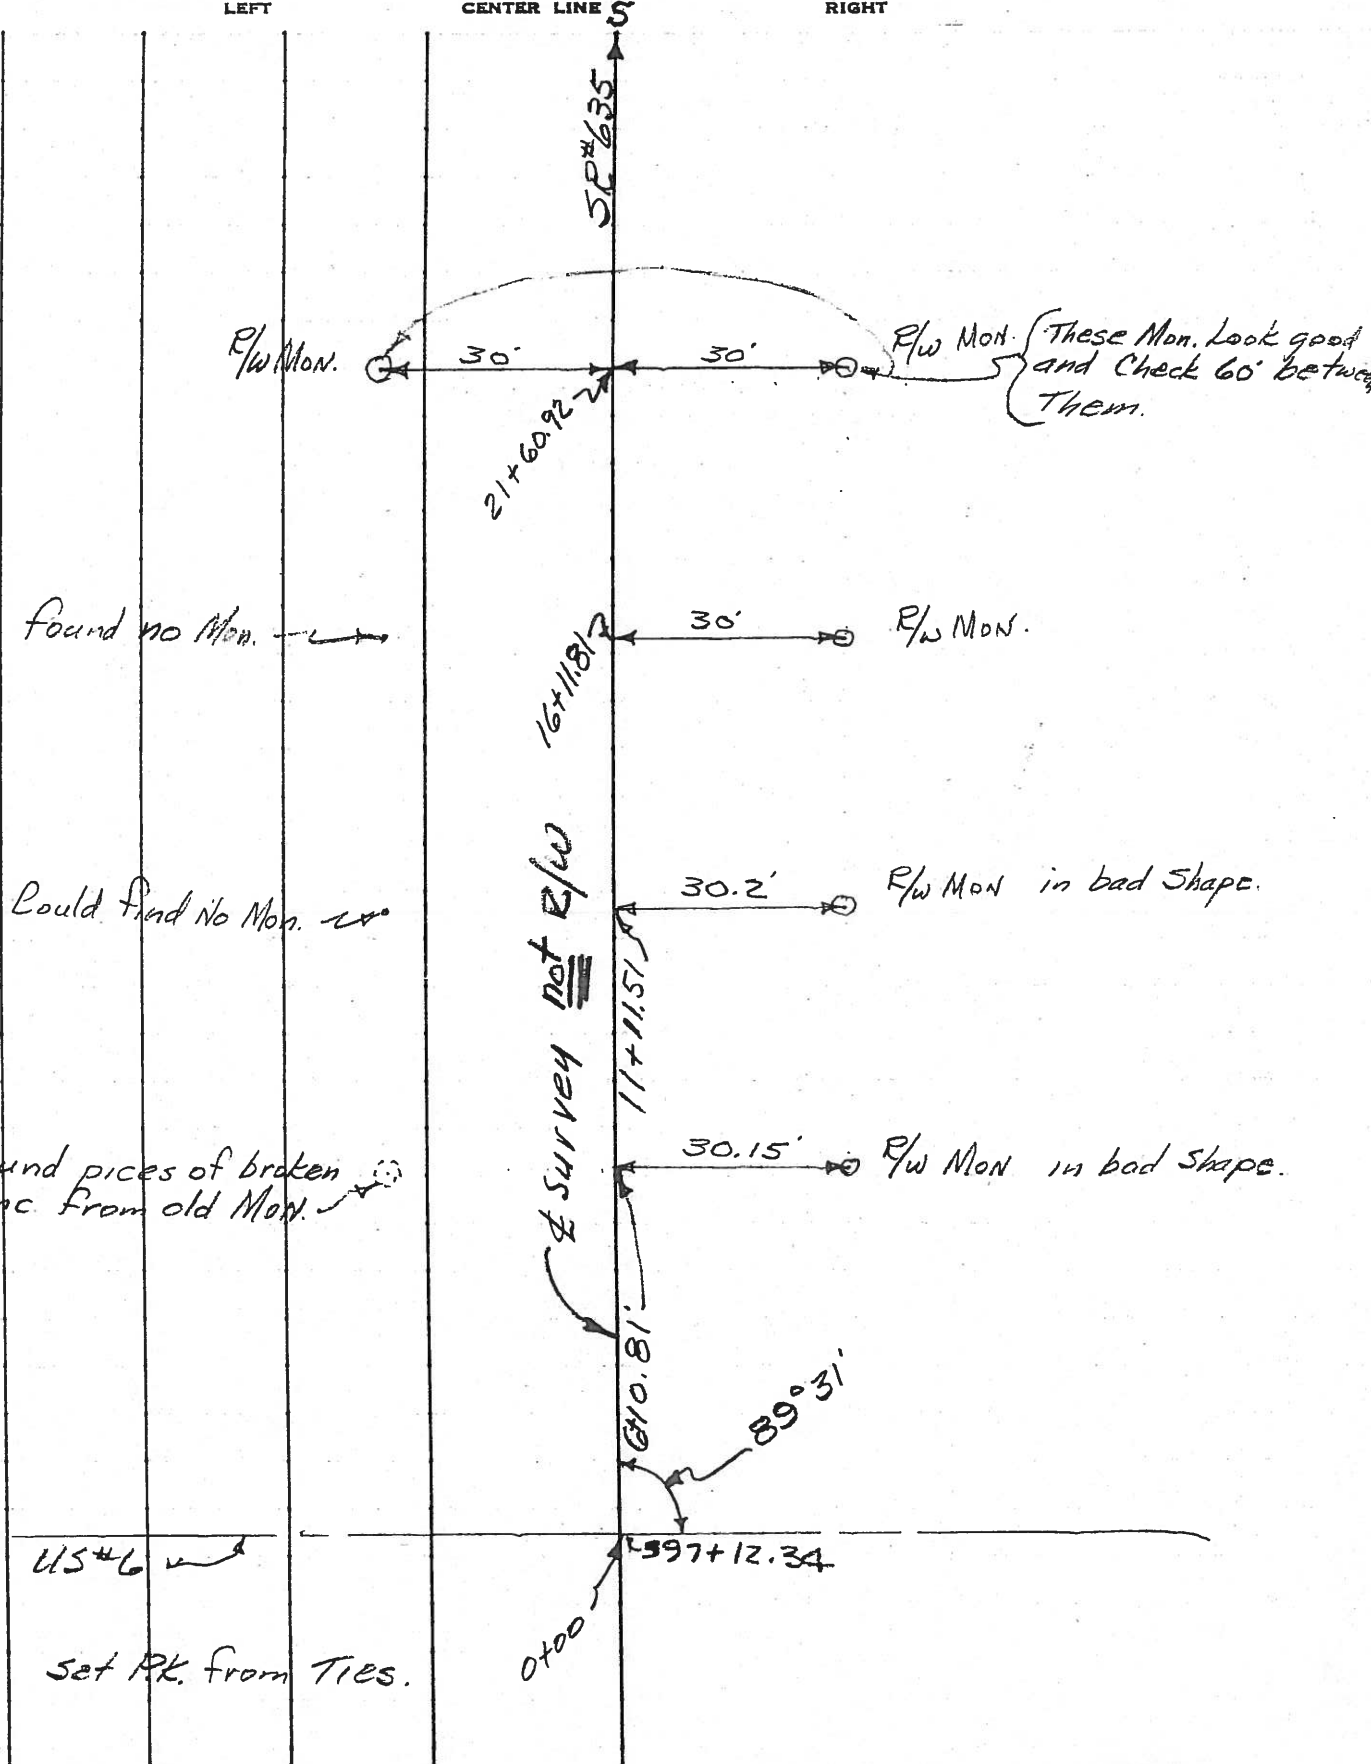 LEFT CENTER LINE RIGHT
S
SR#635
R/W MON. 30' 30' R/W MON. These Mon. Look good
and Check 60' betwee
Them.
21+60.92
found no Mon. 30' R/W MON.
16+11.81
Could find No Mon. 30.2' R/W MON in bad Shape.
11+11.51
℄ Survey not R/W
und pices of broken 30.15' R/W MON in bad Shape.
nc from old MON.
6+10.81
89°31'
US#6 397+12.34
0+00
Set P.K. from Ties.